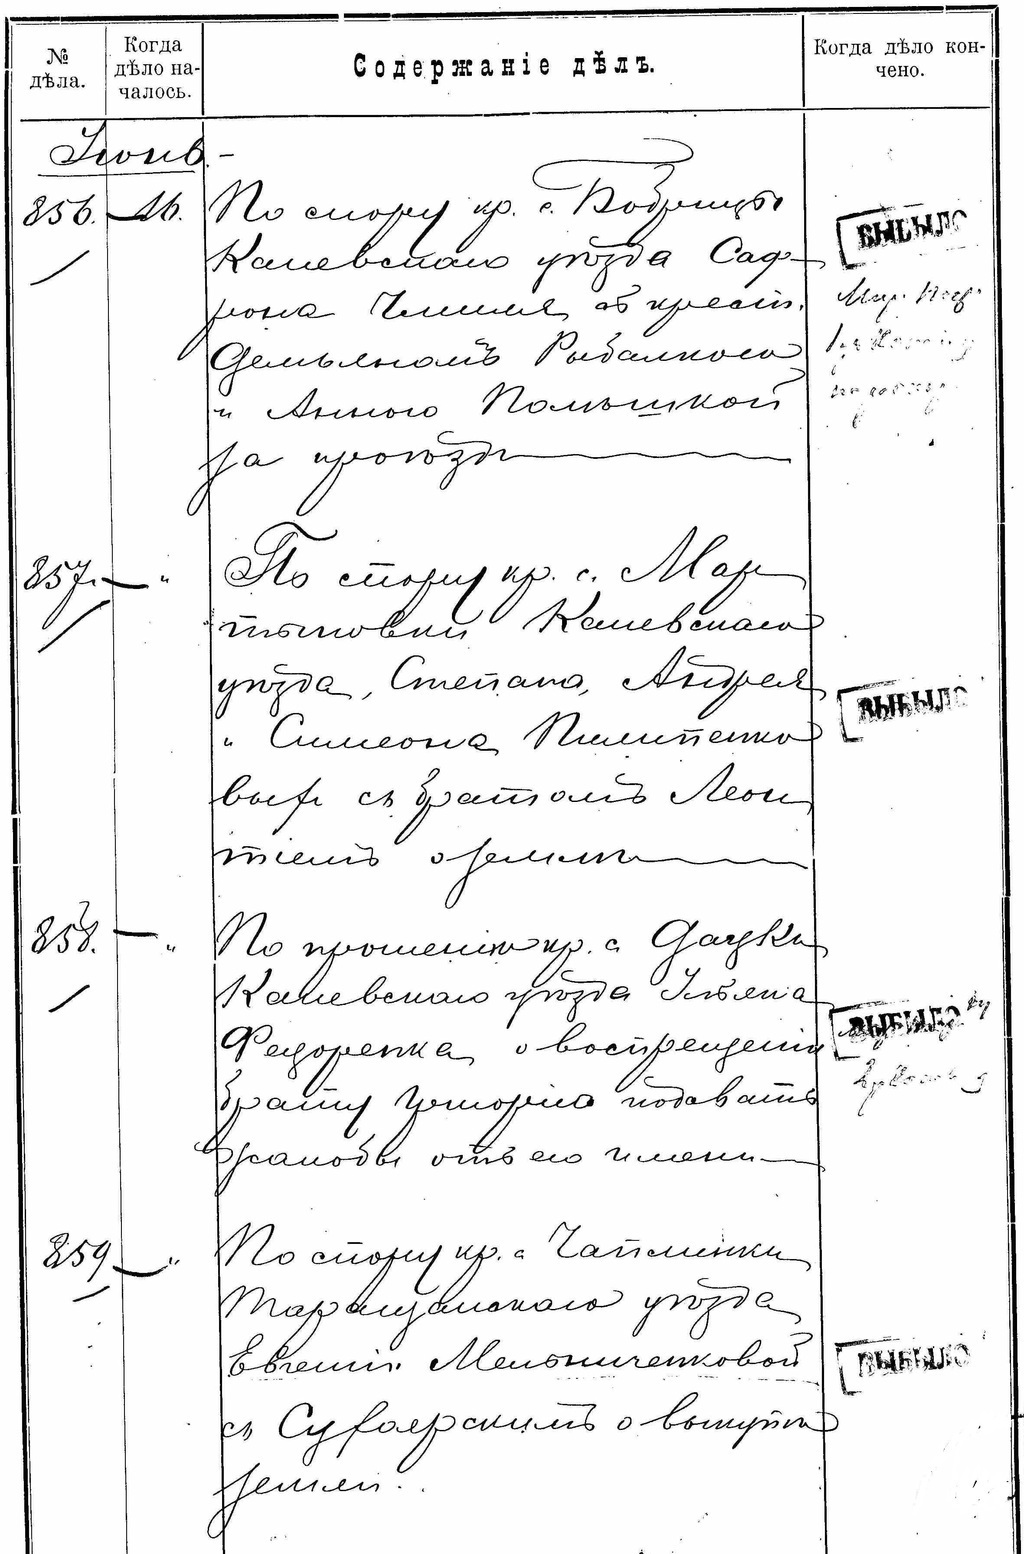 № дѣла.
Когда дѣло на-
чалось.
Содержаніе дѣлъ.
Когда дѣло кон-
чено.
Іюнь.
856. 16. По спору кр. с. Бобрицы
Каневскаго уѣзда Саф-
рона съ крест.
Демьяномъ Рыбалкою
и Анною
за проѣздъ
ВЫБЫЛО
857. " По спору кр. с. Мар
тыновки Каневскаго
уѣзда, Степана, Андрея
и Симеона Пилипенко
выхъ съ братомъ Леон
тіемъ о землѣ
ВЫБЫЛО
858. " По прошенію кр. с.
Каневскаго уѣзда
Федоренка о воспрещеніи
брату подавать
жалобы отъ его имени
ВЫБЫЛО
859 " По спору кр. с Чаплинки
Таращанскаго уѣзда
Евгеніи Мельниченковой
съ о выкупѣ
земли.
ВЫБЫЛО